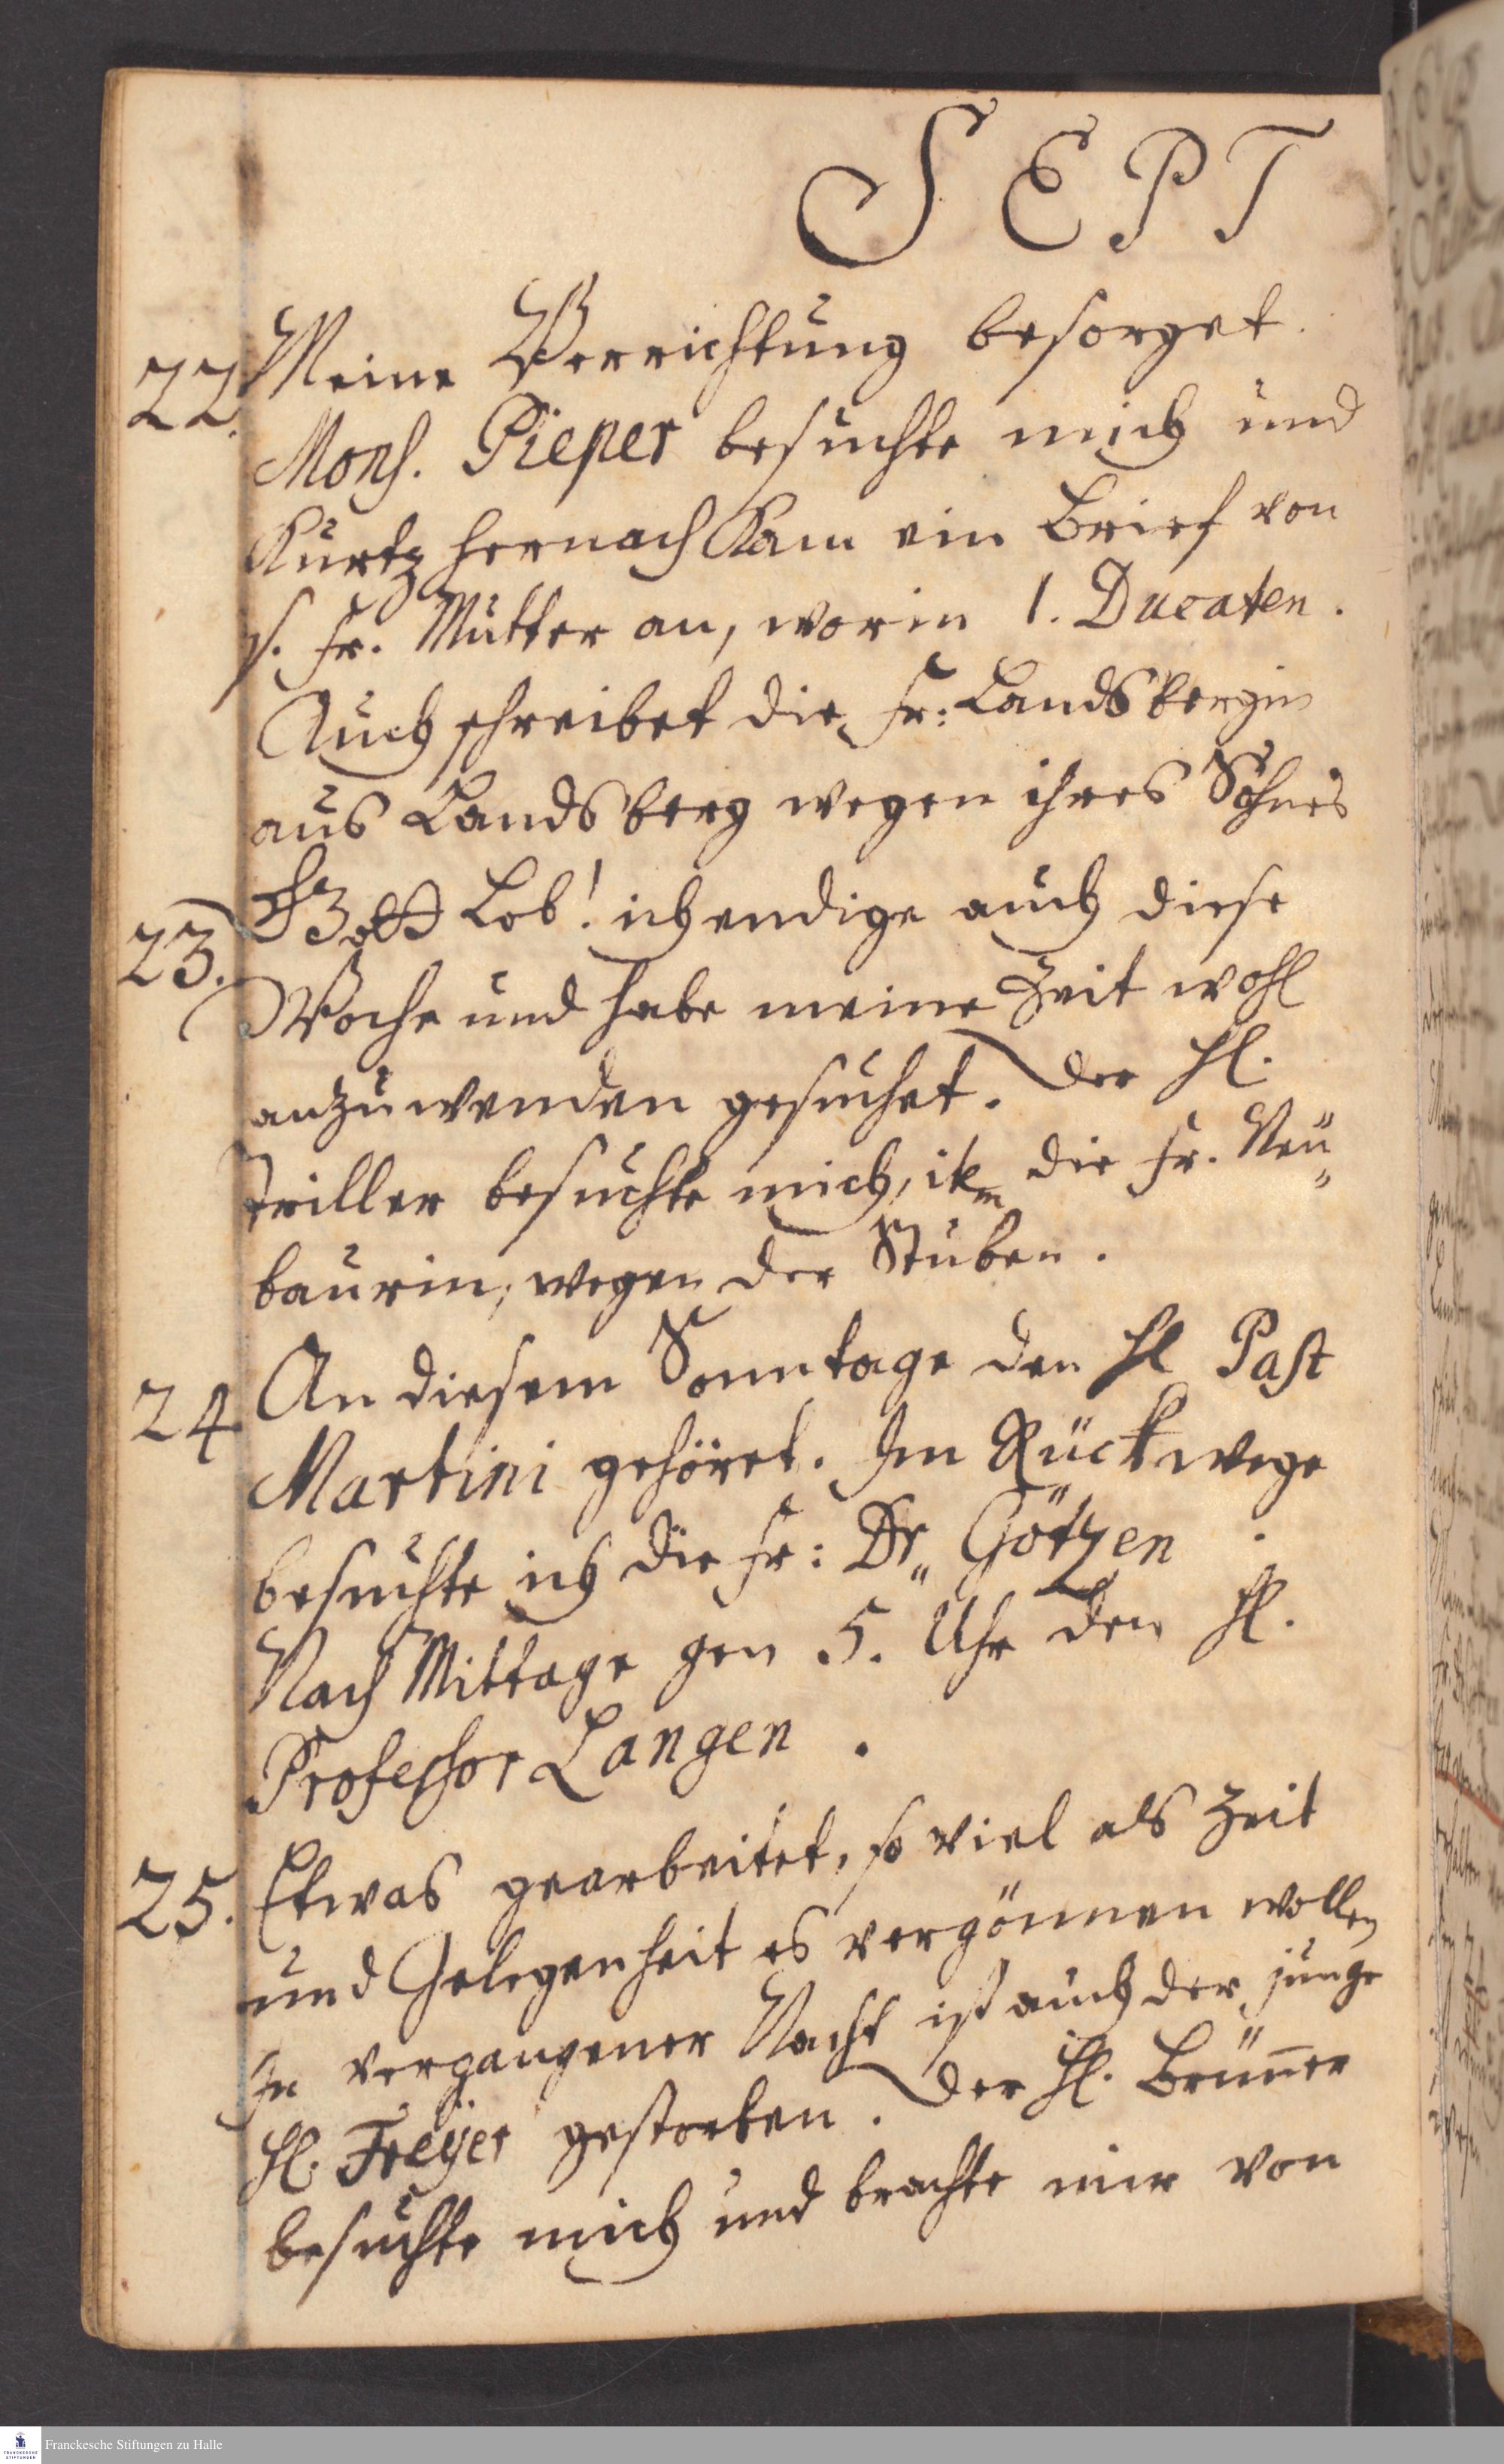 SEPT
22. Meine Verrichtung besorget.
Mons. Pieper besuchte mich und
Kurtz hernach kam ein Brief von
s. Fr. Mutter an, worin 1. Ducaten.
Auch schreibet die Fr: Landsbergin
aus Landsberg wegen ihres Sohnes
23. Gott Lob! ich endige auch diese
Woche und habe meine Zeit wohl
anzuwenden gesuchet. Der Hl.
Triller besuchte mich, item die Fr. Neü„
baurin, wegen der Stuben.
24 An diesem Sonntage den Hl Past
Martini gehöret. Im Rückwege
besuchte ich die Fr: Dr„ Götzen.
Nach Mittage gen 5. Uhr den Hl.
Professor Langen.
25. Etwas gearbeitet, so viel als Zeit
und Gelegenheit es vergönnen wollen
In vergangener Nacht ist auch der junge
Hl. Freÿer gestorben. Der Hl. Brün̄er
besuchte mich und brachte mir von
FRANCKESCHE STIFTUNGEN
Franckesche Stiftungen zu Halle